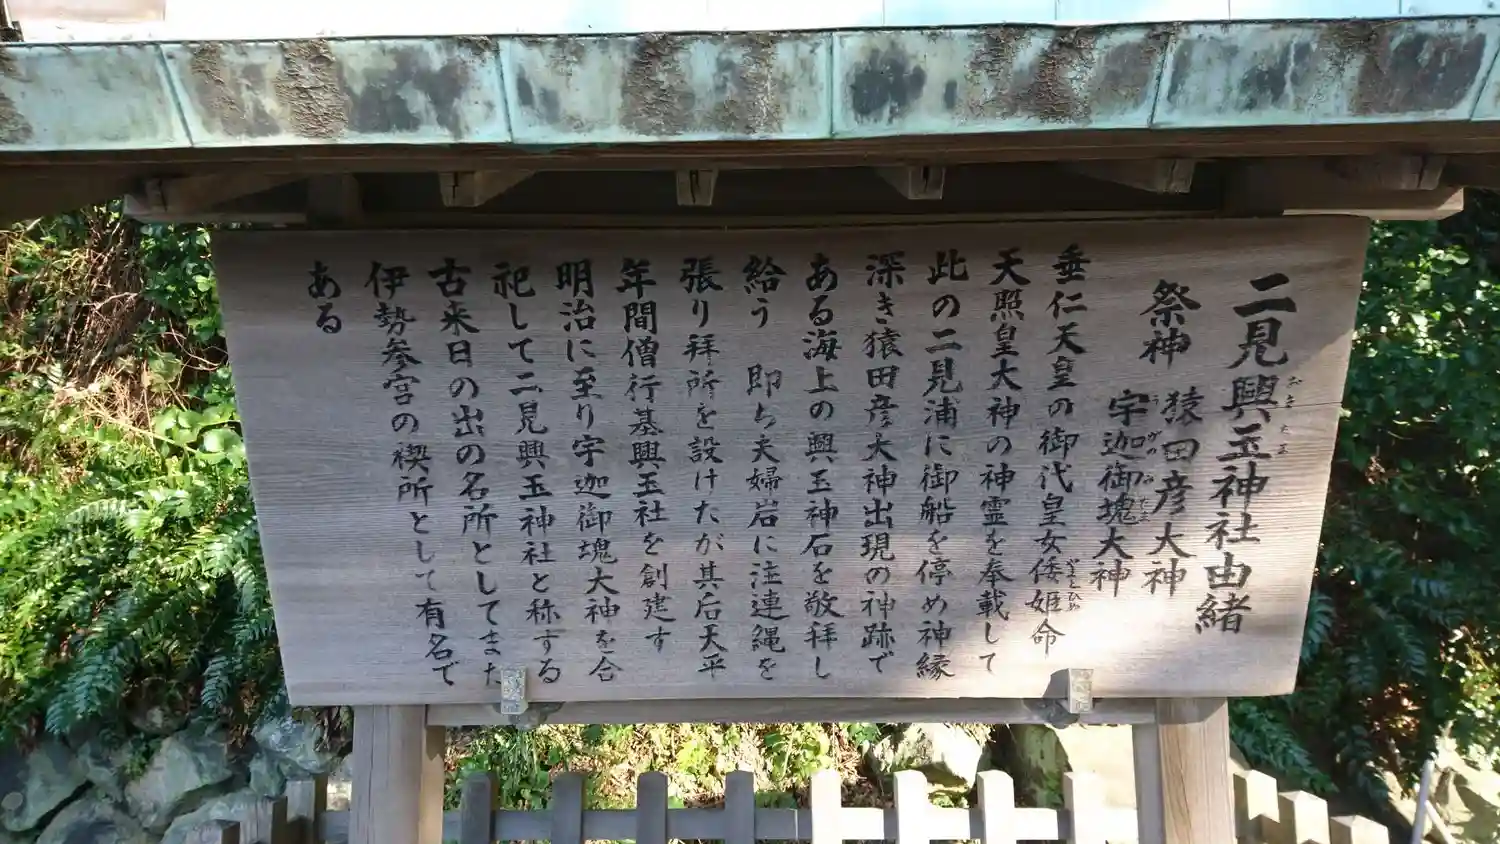 二見興玉神社由緒
おきたま
祭神 猿田彦大神
宇迦御魂大神
うかのみたま
垂仁天皇の御代皇女倭姫命
やまとひめ
天照皇大神の神霊を奉載して
此の二見浦に御船を停め神縁
深き猿田彦大神出現の神跡で
ある海上の興玉神石を敬拝し
給う 即ち夫婦岩に注連縄を
張り拝所を設けたが其后天平
年間僧行基興玉社を創建す
明治に至り宇迦御魂大神を合
祀して二見興玉神社と称する
古来日の出の名所としてまた
伊勢参宮の禊所として有名で
ある